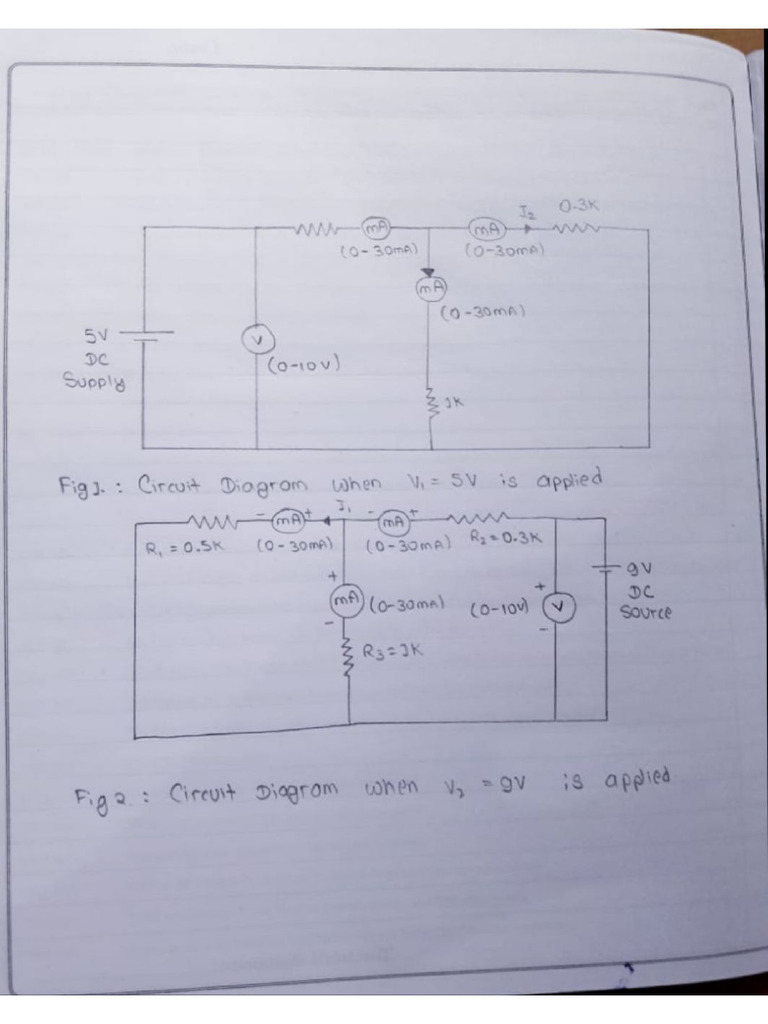 mA
mA
I2
0.3K
(0-30mA)
(0-30mA)
mA
(0-30mA)
5V
DC
Supply
V
(0-10V)
1K
Fig 1. : Circuit Diagram when V1 = 5V is applied
I1
- mA +
- mA +
R1 = 0.5K
(0-30mA)
(0-30mA)
R2 = 0.3K
+
mA
-
(0-30mA)
(0-10V)
+
V
-
9V
DC
Source
R3 = 1K
Fig 2. : Circuit Diagram when V2 = 9V is applied